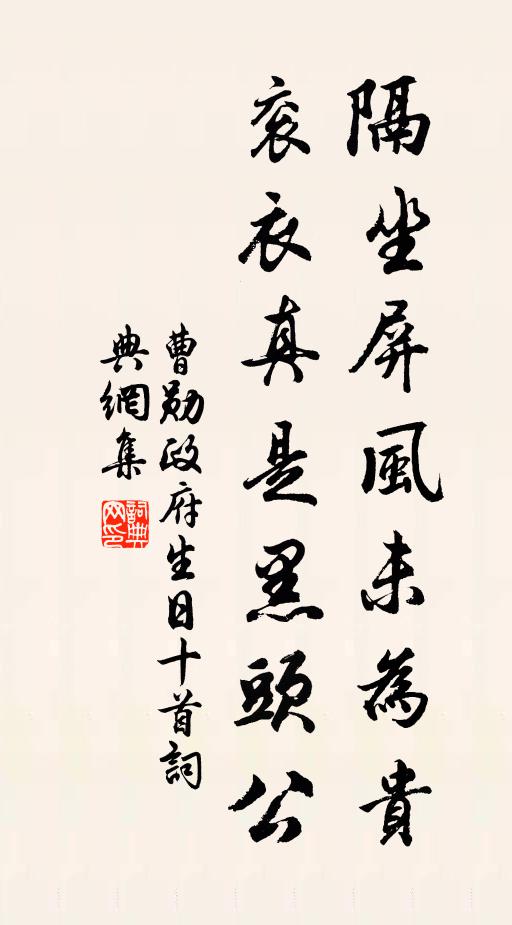 隔坐屏風未為貴
衮衣真是黑頭公
曹勛政府生日十首詞
典網集
詞典网印